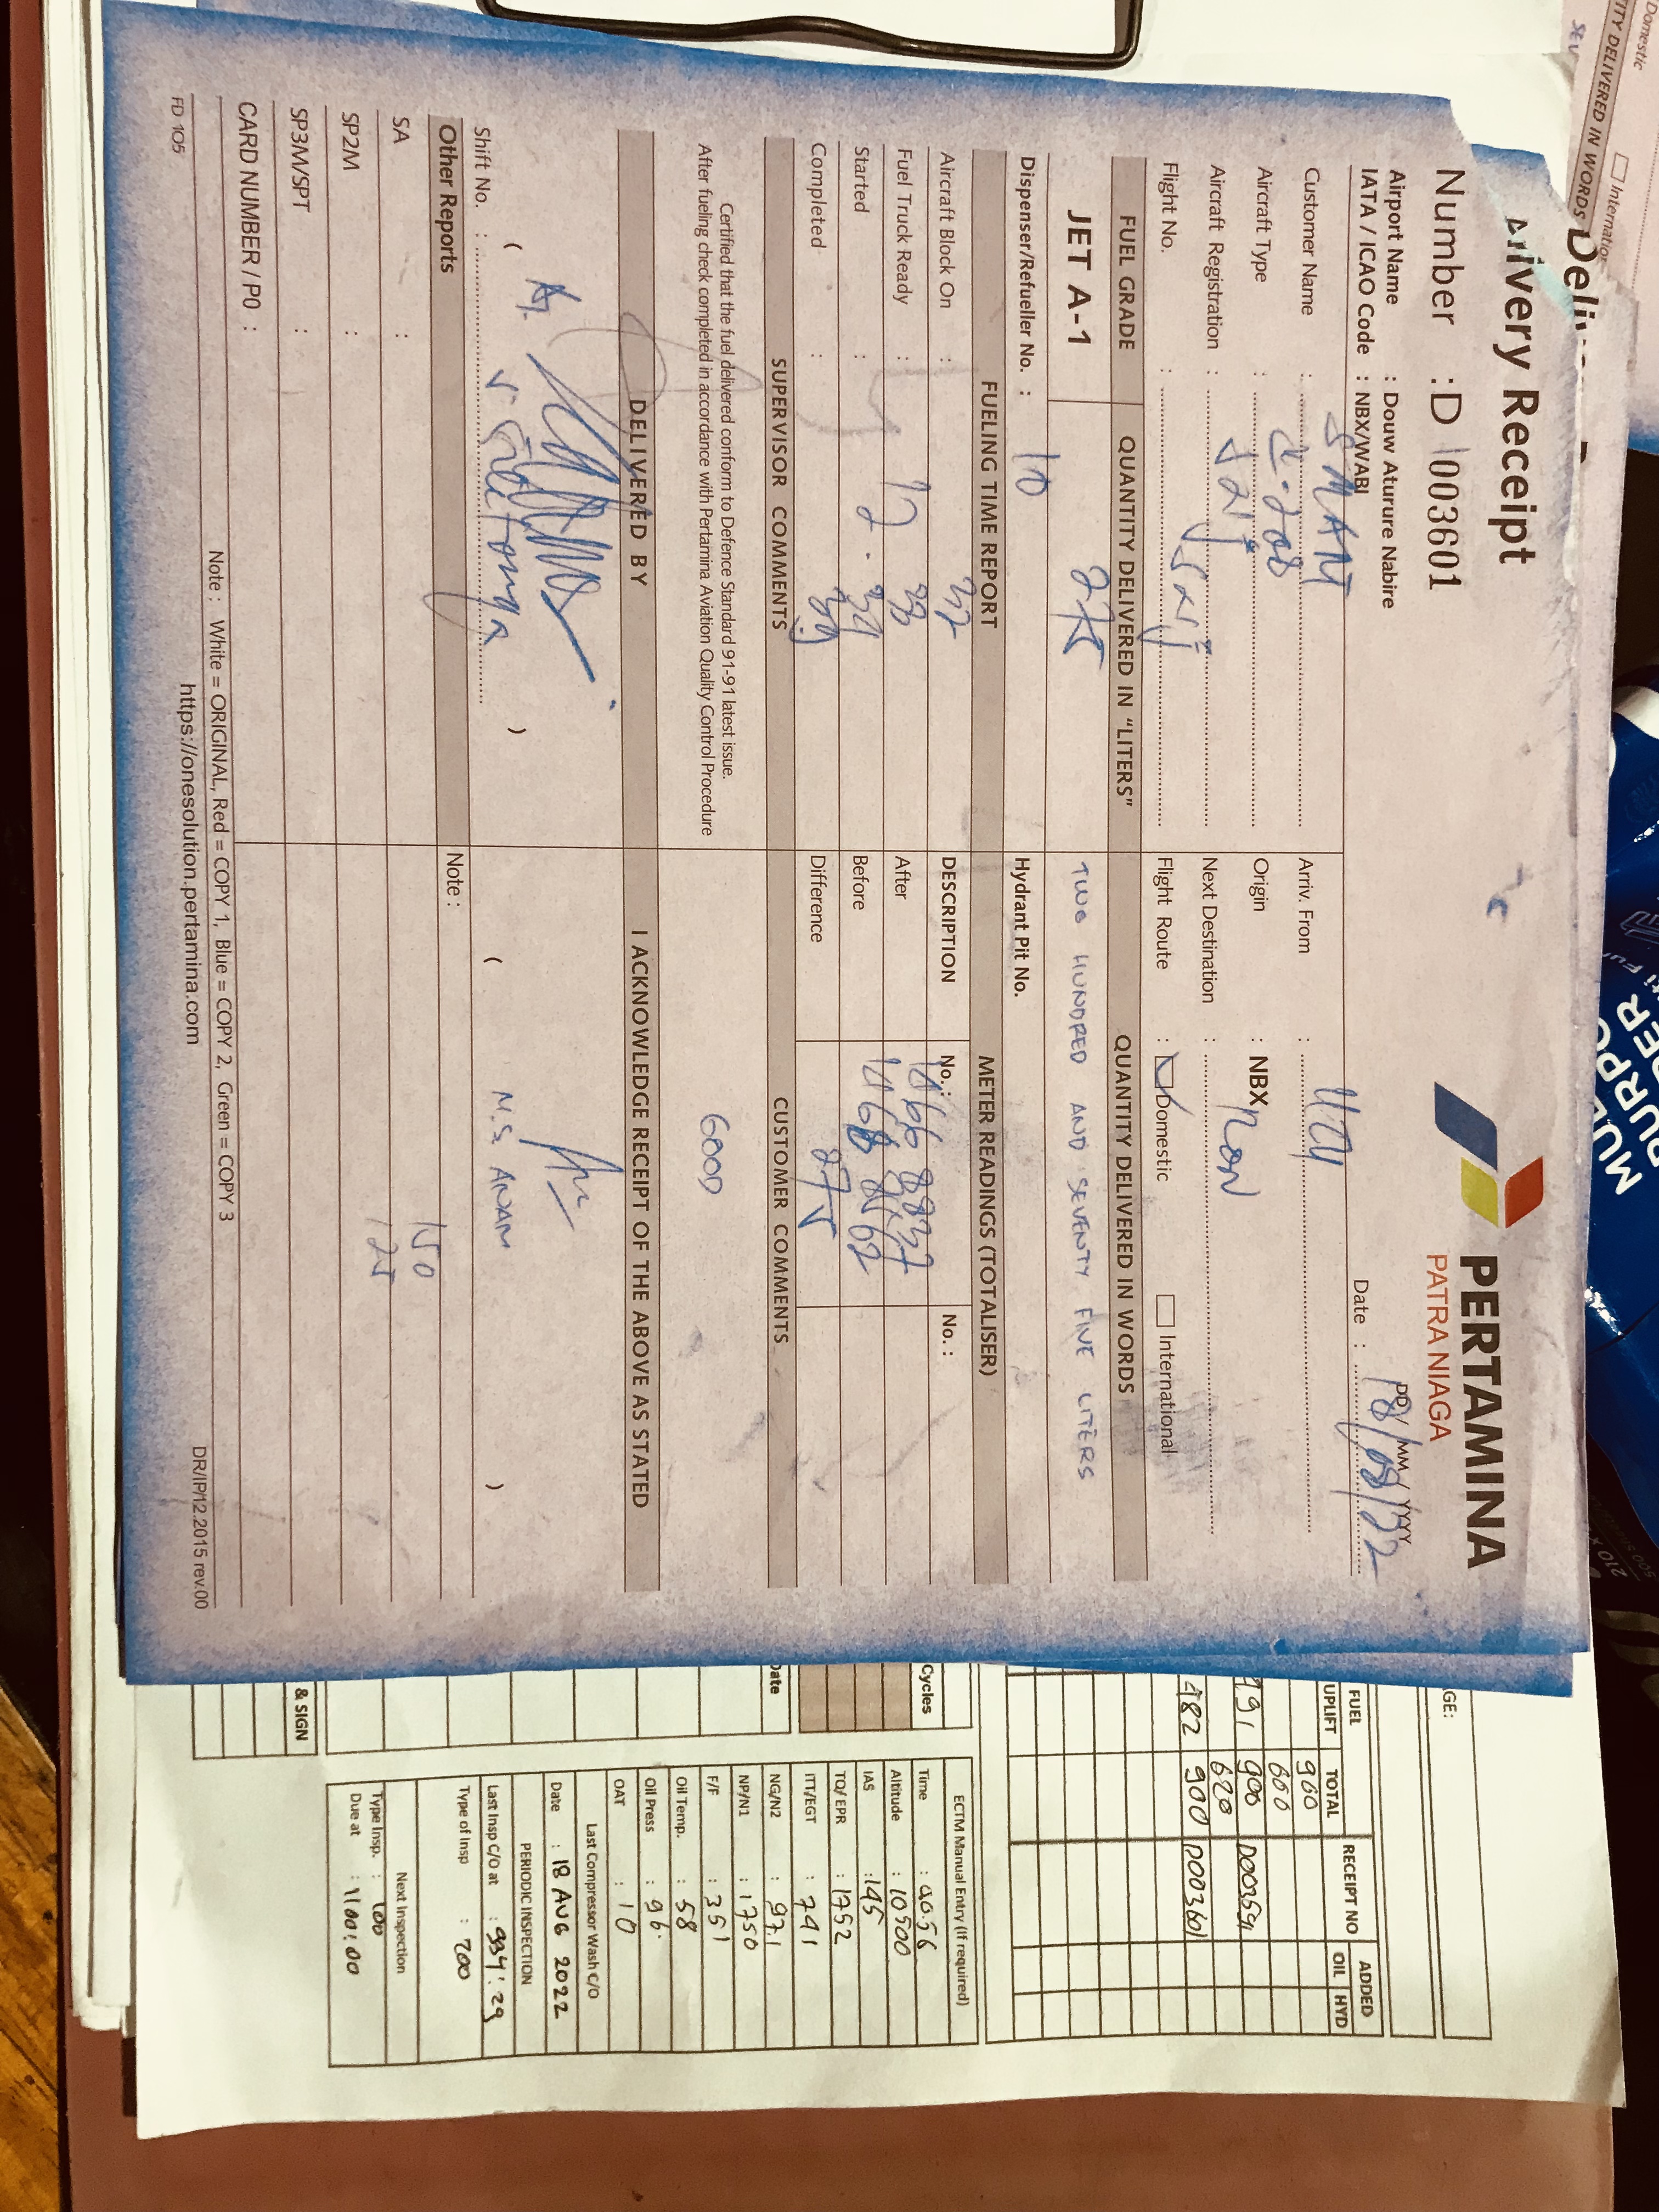 Delivery Receipt
PERTAMINA
PATRA NIAGA
Number : D 003601
Airport Name : Douw Aturure Nabire
IATA / ICAO Code : NBX/WABI
DD / MM / YYYY
Date : 18/08/22
Customer Name : SMART
Arriv. From :
Aircraft Type : C-208
Origin : NBX
Aircraft Registration :
Next Destination :
Flight No. :
Flight Route : Domestic International
FUEL GRADE
QUANTITY DELIVERED IN "LITERS"
QUANTITY DELIVERED IN WORDS
JET A-1
275
TWO HUNDRED AND SEVENTY FIVE LITERS
Dispenser/Refueller No. : 10
Hydrant Pit No.
FUELING TIME REPORT
METER READINGS (TOTALISER)
Aircraft Block On : 32
DESCRIPTION
No.:
No. :
Fuel Truck Ready : 12 33
After
Started : 2 . 34
Before
Completed : 39
Difference 275
SUPERVISOR COMMENTS
CUSTOMER COMMENTS
Certified that the fuel delivered conform to Defence Standard 91-91 latest issue.
After fueling check completed in accordance with Pertamina Aviation Quality Control Procedure
GOOD
DELIVERED BY
I ACKNOWLEDGE RECEIPT OF THE ABOVE AS STATED
( )
( M.S. ANAM )
Shift No. :
Other Reports
Note :
150
125
SA :
SP2M :
SP3M/SPT :
CARD NUMBER / PO :
Note : White = ORIGINAL, Red = COPY 1, Blue = COPY 2, Green = COPY 3
FD 105
https://onesolution.pertamina.com
DR/IP/12.2015 rev.00
Deli
Domestic
Internatio
ITY DELIVERED IN WORDS
MUL
PURPO
GE:
FUEL UPLIFT
TOTAL
RECEIPT NO
ADDED
OIL HYD
900
600
491 900 D003591
620
482 900 D003601
Cycles
Date
& SIGN
ECTM Manual Entry (If required)
Time : 0056
Altitude : 10500
IAS : 145
TQ/ EPR : 1752
ITT/EGT : 741
NG/N2 : 97.1
NP/N1 : 1750
F/F : 351
Oil Temp. : 58
Oil Press : 96.
OAT : 10
Last Compressor Wash C/O
Date : 18 AUG 2022
PERIODIC INSPECTION
Last Insp C/O at : 934:29
Type of Insp : 200
Next Inspection
Type Insp. : 100
Due at : 1100:00